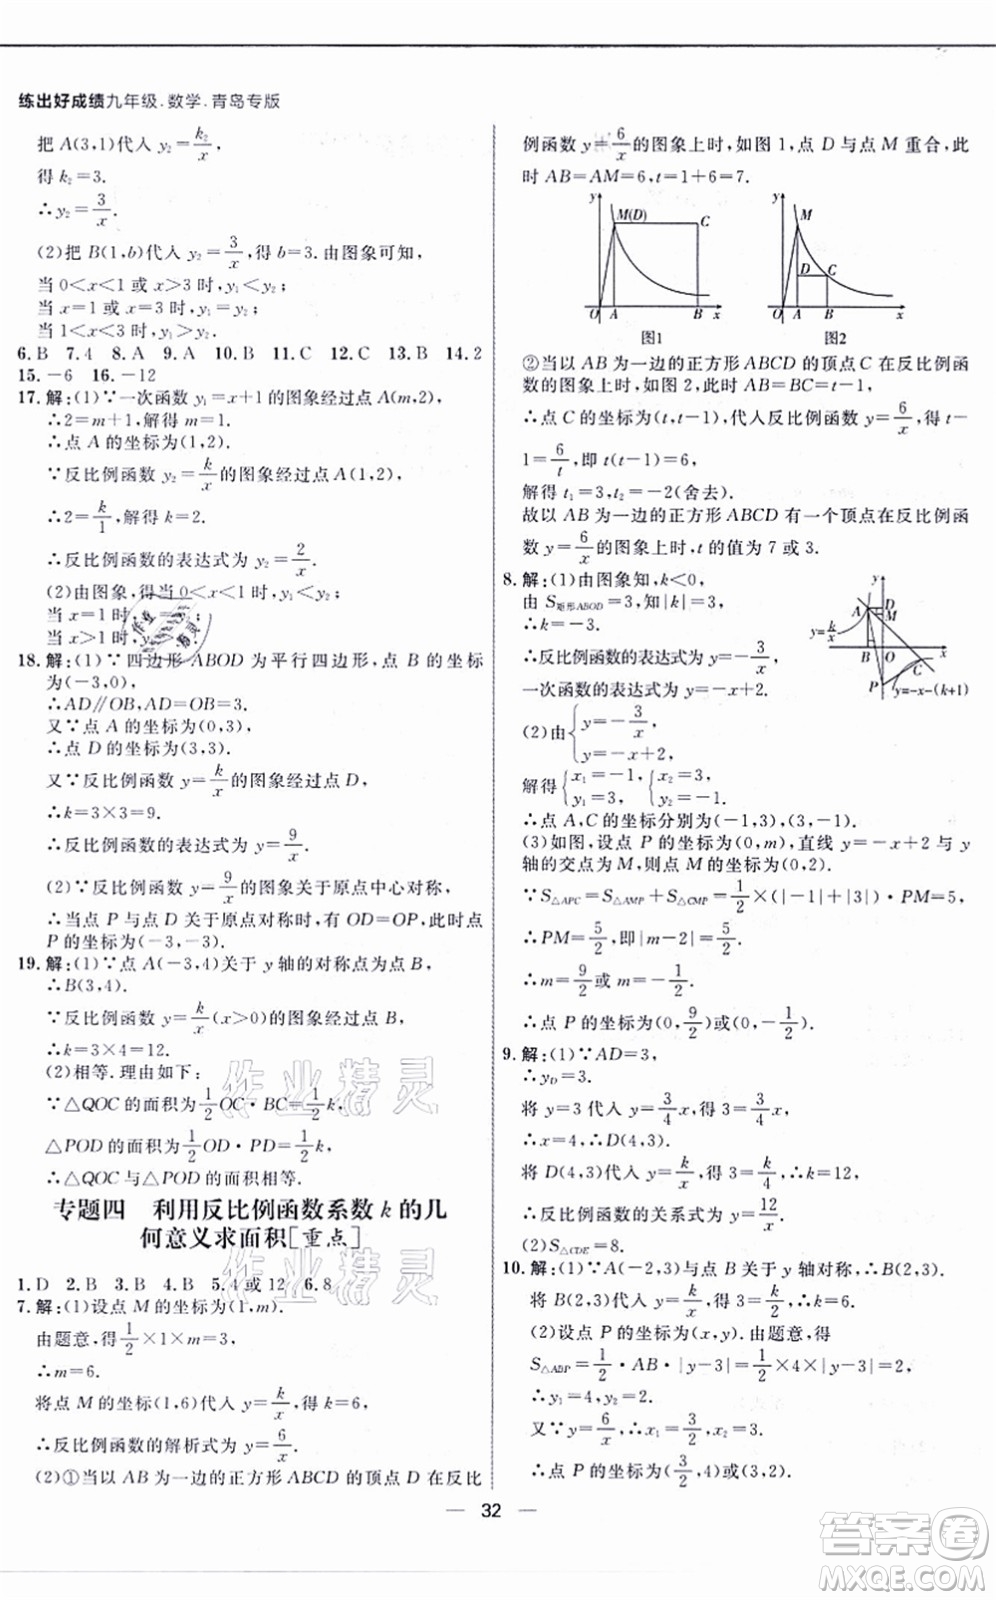 练出好成绩九年级.数学.青岛专版
把 A(3,1)代人 y₂=k₂/x,
得 k₂=3.
∴y₂=3/x.
(2)把 B(1,b)代人 y₂=3/x,得 b=3.由图象可知,
当 0<x<1 或 x>3 时,y₁<y₂;
当 x=1 或 x=3 时,y₁=y₂;
当 1<x<3 时,y₁>y₂.
6.B 7.4 8.A 9.A 10.B 11.C 12.C 13.B 14.2
15.-6 16.-12
17.解:(1)∵一次函数 y₁=x+1 的图象经过点 A(m,2),
∴2=m+1,解得 m=1.
∴点 A 的坐标为(1,2).
∵反比例函数 y₂=k/x的图象经过点 A(1,2),
∴2=k/1,解得 k=2.
∴反比例函数的表达式为 y₂=2/x.
(2)由图象,得当 0<x<1 时,y₁<y₂;
当 x=1 时,y₁=y₂;
当 x>1 时,y₁>y₂.
18.解:(1)∵四边形 ABOD 为平行四边形,点 B 的坐标
为(-3,0),
∴AD∥OB,AD=OB=3.
又∵点 A 的坐标为(0,3),
∴点 D 的坐标为(3,3).
又∵反比例函数 y=k/x的图象经过点 D,
∴k=3×3=9.
∴反比例函数的表达式为 y=9/x.
(2)∵反比例函数 y=9/x的图象关于原点中心对称,
∴当点 P 与点 D 关于原点对称时,有 OD=OP,此时点
P 的坐标为(-3,-3).
19.解:(1)∵点 A(-3,4)关于 y 轴的对称点为点 B,
∴B(3,4).
∵反比例函数 y=k/x(x>0)的图象经过点 B,
∴k=3×4=12.
(2)相等.理由如下:
∵△QOC 的面积为1/2OC·BC=1/2k,
△POD 的面积为1/2OD·PD=1/2k,
∴△QOC与△POD 的面积相等.
专题四 利用反比例函数系数 k 的几
何意义求面积[重点]
1.D 2.B 3.B 4.B 5.4 或 12 6.8
7.解:(1)设点 M 的坐标为(1,m).
由题意,得1/2×1×m=3,
∴m=6.
将点 M 的坐标(1,6)代人 y=k/x,得 k=6,
∴反比例函数的解析式为 y=6/x.
(2)①当以 AB 为一边的正方形 ABCD 的顶点 D 在反比
例函数 y=6/x的图象上时,如图 1,点 D 与点 M 重合,此
时 AB=AM=6,t=1+6=7.
y M(D) C O A B x
图1
y M D C O A B x
图2
②当以 AB 为一边的正方形 ABCD 的顶点 C 在反比例函
数的图象上时,如图 2,此时 AB=BC=t-1,
∴点 C 的坐标为(t,t-1),代人反比例函数 y=6/x,得 t-
1=6/t,即 t(t-1)=6,
解得 t₁=3,t₂=-2(舍去).
故以 AB 为一边的正方形 ABCD 有一个顶点在反比例函
数 y=6/x的图象上时,t 的值为 7 或 3.
8.解:(1)由图象知,k<0,
由 S矩形ABOD=3,知|k|=3,
∴k=-3.
∴反比例函数的表达式为 y=-3/x,
一次函数的表达式为 y=-x+2.
y A D M y=k/x B O x C P y=-x-(k+1)
(2)由{y=-3/x, y=-x+2,
解得{x₁=-1, y₁=3, {x₂=3, y₂=-1.
∴点 A,C 的坐标分别为(-1,3),(3,-1).
(3)如图,设点 P 的坐标为(0,m),直线 y=-x+2 与 y
轴的交点为 M,则点 M 的坐标为(0,2).
∵S△APC=S△AMP+S△CMP=1/2×(|-1|+|3|)·PM=5,
∴PM=5/2,即|m-2|=5/2.
∴m=9/2或 m=-1/2.
∴点 P 的坐标为(0,9/2)或(0,-1/2).
9.解:(1)∵AD=3,
∴y_D=3.
将 y=3 代人 y=3/4x,得 3=3/4x,
∴x=4,∴D(4,3).
将 D(4,3)代人 y=k/x,得 k=12,
∴反比例函数的关系式为 y=12/x.
(2)S△CDE=8.
10.解:(1)∵A(-2,3)与点 B 关于 y 轴对称,∴B(2,3).
将 B(2,3)代人 y=k/x,得 3=k/2,∴k=6.
(2)设点 P 的坐标为(x,y).由题意,得
S△ABP=1/2·AB·|y-3|=1/2×4×|y-3|=2,
∴y₁=4,y₂=2.
又∵y=6/x,∴x₁=3/2,x₂=3.
∴点 P 的坐标为(3/2,4)或(3,2).
32
作业精灵
作业精灵
作业精灵
答案卷
MXQE.COM